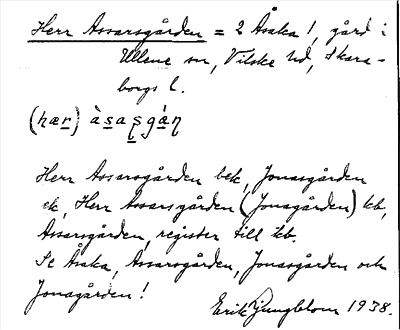 Herr Assarsgården = 2 Åsaka 1, gård i
Ullene sn, Vilske hd, Skara-
borgs l.
(hær) àsaṣgán
Herr Assarsgården bek, Jonasgården
ek, Herr Assarsgården (Jonagården) kb,
Assarsgården, register till kb.
Se Åsaka, Assarsgården, Jonasgården och
Jonagården!
Erik Ljungblom 1938.